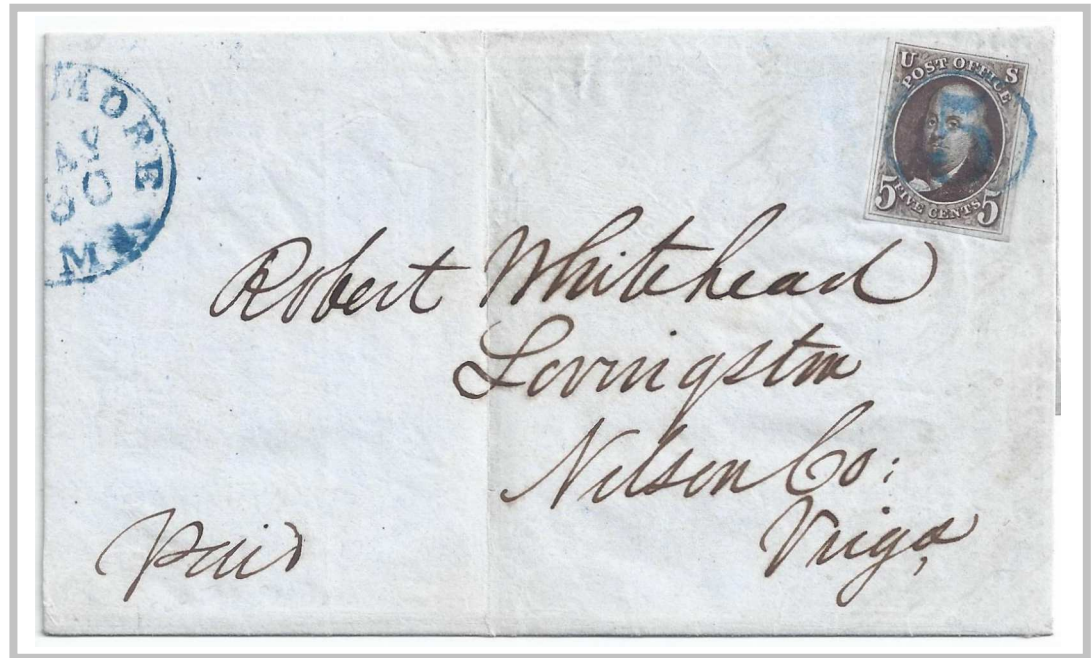 MORE
AY
30
Md
U S
POST OFFICE
5
5 FIVE CENTS 5
Robert Whitehead
Lovingston
Nelson Co:
Virga,
Paid